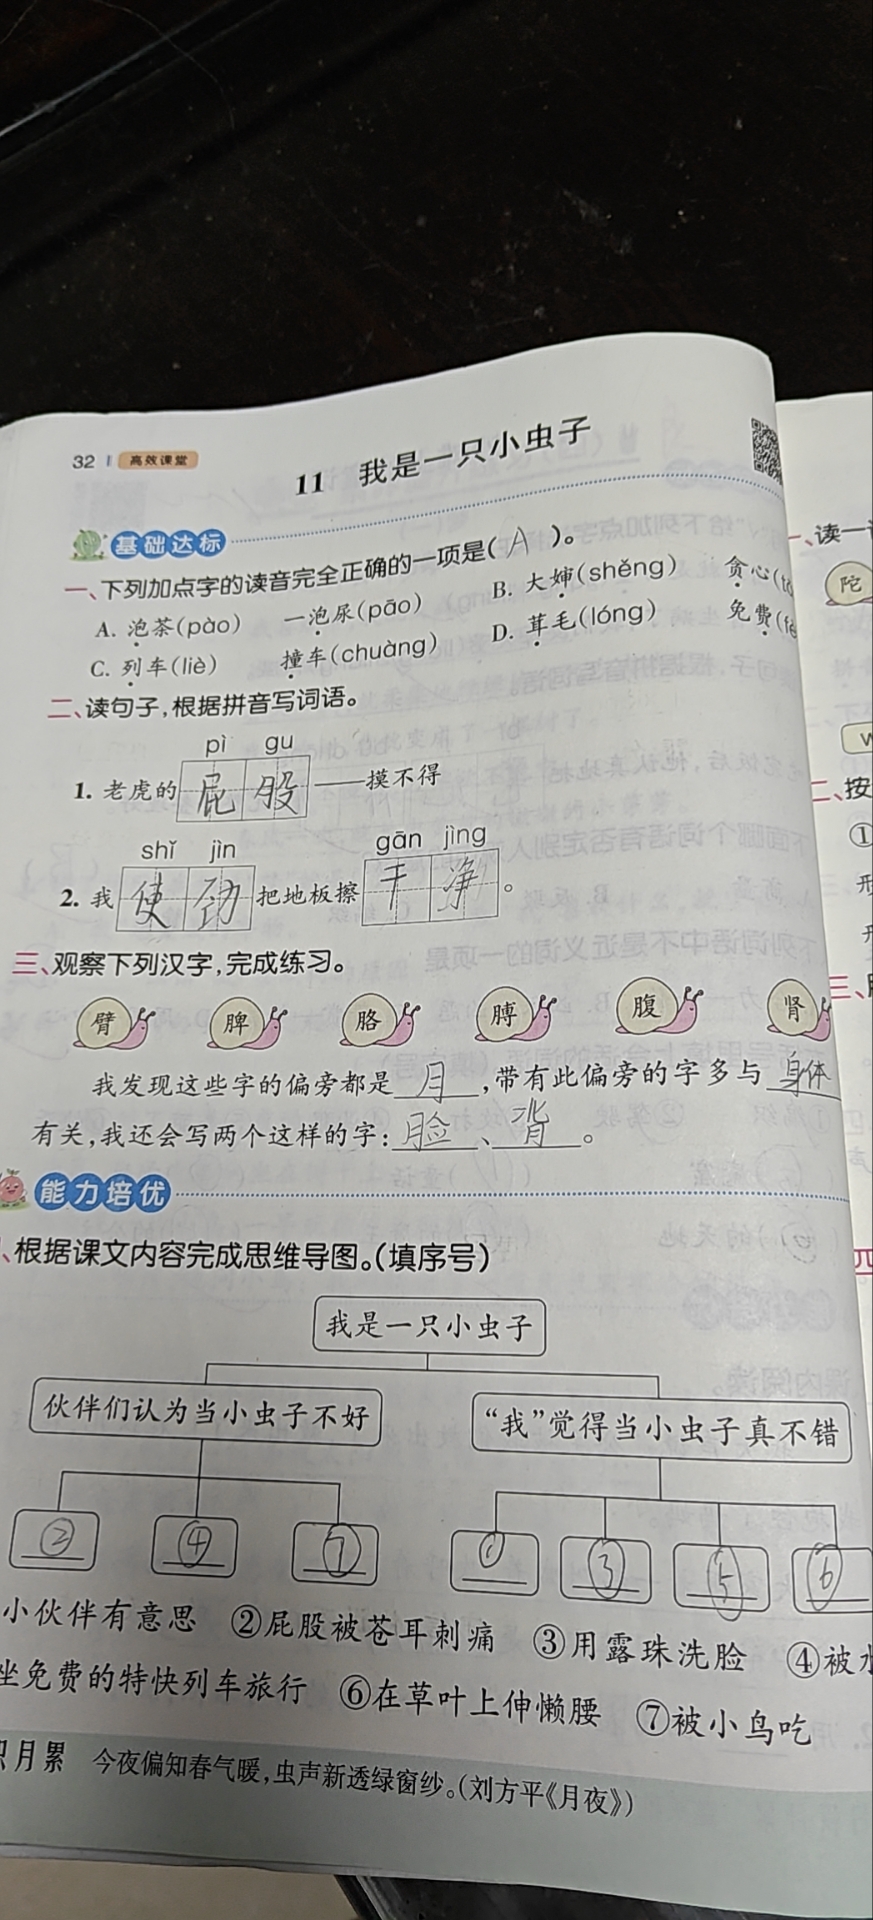 32 高效课堂
11 我是一只小虫子
基础达标
一、下列加点字的读音完全正确的一项是( A )。
A. 泡茶(pào) 一泡尿(pāo) B. 大婶(shěng) 贪心(t
C. 列车(liè) 撞车(chuàng) D. 茸毛(lóng) 免费(f
二、读句子,根据拼音写词语。
pì gu
1. 老虎的屁股——摸不得
shǐ jìn gān jìng
2. 我使劲把地板擦干净。
三、观察下列汉字,完成练习。
臂 脾 胳 膊 腹 肾
我发现这些字的偏旁都是月,带有此偏旁的字多与身体
有关,我还会写两个这样的字:脸、背。
能力培优
、根据课文内容完成思维导图。(填序号)
我是一只小虫子
伙伴们认为当小虫子不好 “我”觉得当小虫子真不错
② ④ ⑦ ① ③ ⑤ ⑥
小伙伴有意思 ②屁股被苍耳刺痛 ③用露珠洗脸 ④被
坐免费的特快列车旅行 ⑥在草叶上伸懒腰 ⑦被小鸟吃
月累 今夜偏知春气暖,虫声新透绿窗纱。(刘方平《月夜》)
一、读一
陀
w
二、按
①
形
三、
四